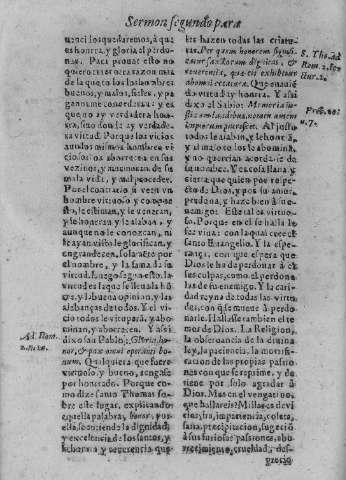 Sermon segundo para
uencilos quedaremos, à que
es honra, y gloria el perdo-
nar. Para prouar esto no
quiero traer otra razon mas
de la que to los los hombres
buenos, y malos, fieles, y pa-
ganos me concederan: y es
que no ay verdadera hon-
ra, sino donde ay verdade-
ra virtud. Porque los vicios
aun los mismos hombres vi
ciosos los aborrecen en sus
vezinos, y murmuran de su
mala vida, y mal proceder.
Por el contrario si veen vn
hombre virtuoso y compue
sto, le estiman, y le veneran,
y le honran y le alaban, y
aunque no le conozcan, ni
le ayan visto le glorifican, y
engrandecen, solo a tento por
el nombre, y la fama de su
virtud. Luego segun esto, la
virtud es la que se lleua la hõ
ra, y la buena opinion, y las
alabanças de todos. Y el vi-
cio todos le vituperã, y abo-
minan, y aborrecen. Y assi
dixo san Pablo: Gloria, ho-
nor, & pax omni operanti bo-
num. Qualquiera que fuere
virtuoso, y bueno, tengase
por honrado. Porque co-
mo dize santo Thomas so-
bre este lugar, explicando
aquella palabra, honor, por
ella, se entiende la dignidad,
y excelencia de los santos, y
la honra y reuerencia que
les hazen todas las criatu-
ras. Per quam honorem signifi-
catur sanctorum dignitas, &
reuerentia, quæ eis exhibetur
ab omni creatura. Que en auiẽ
do virtud ay honra. Y assi
dixo el Sabio: Memoria iu-
sti cum laudibus, nomen autem
impiorum putrescet. Al justo
todos le alaban, y le honrã,
y al malo todos le abominã,
y no querrian acordarse de
su nombre. Y es cosa llana y
cierta que quien por respe-
cto de Dios, y por su amor,
perdona, y haze bien à su ene-
migo: Este tal es virtuo-
so. Porque en el se halla la
fee viua: con la qual cree el
santo Euangelio. Y la espe-
rança, con que espera que
Dios le ha de perdonar à el
sus culpas, como el perdona
las de su enemigo. Y la cari-
dad reyna de todas las virtu
des, con que se mueue à perdo-
narle. Hallase tambien el te
mor de Dios. La Religion,
la obseruancia de la diuina
ley, la paciencia, la mortifi-
cacion de las propias passio
nes con que se reprime, y de
tiene por solo agradar à
Dios. Mas en el vengatiuo,
que hallareis? Millares de vi
cios, ira, impaciencia, colera,
saña, precipitacion, sugecion
à sus furiosas passiones, abo-
rrecimiento, crueldad, des-
precio
Ad Rom.
2. n. 10.
S. Tho. ad
Rom. 2. lec
tur. 2.
Prou. 10.
n. 7.